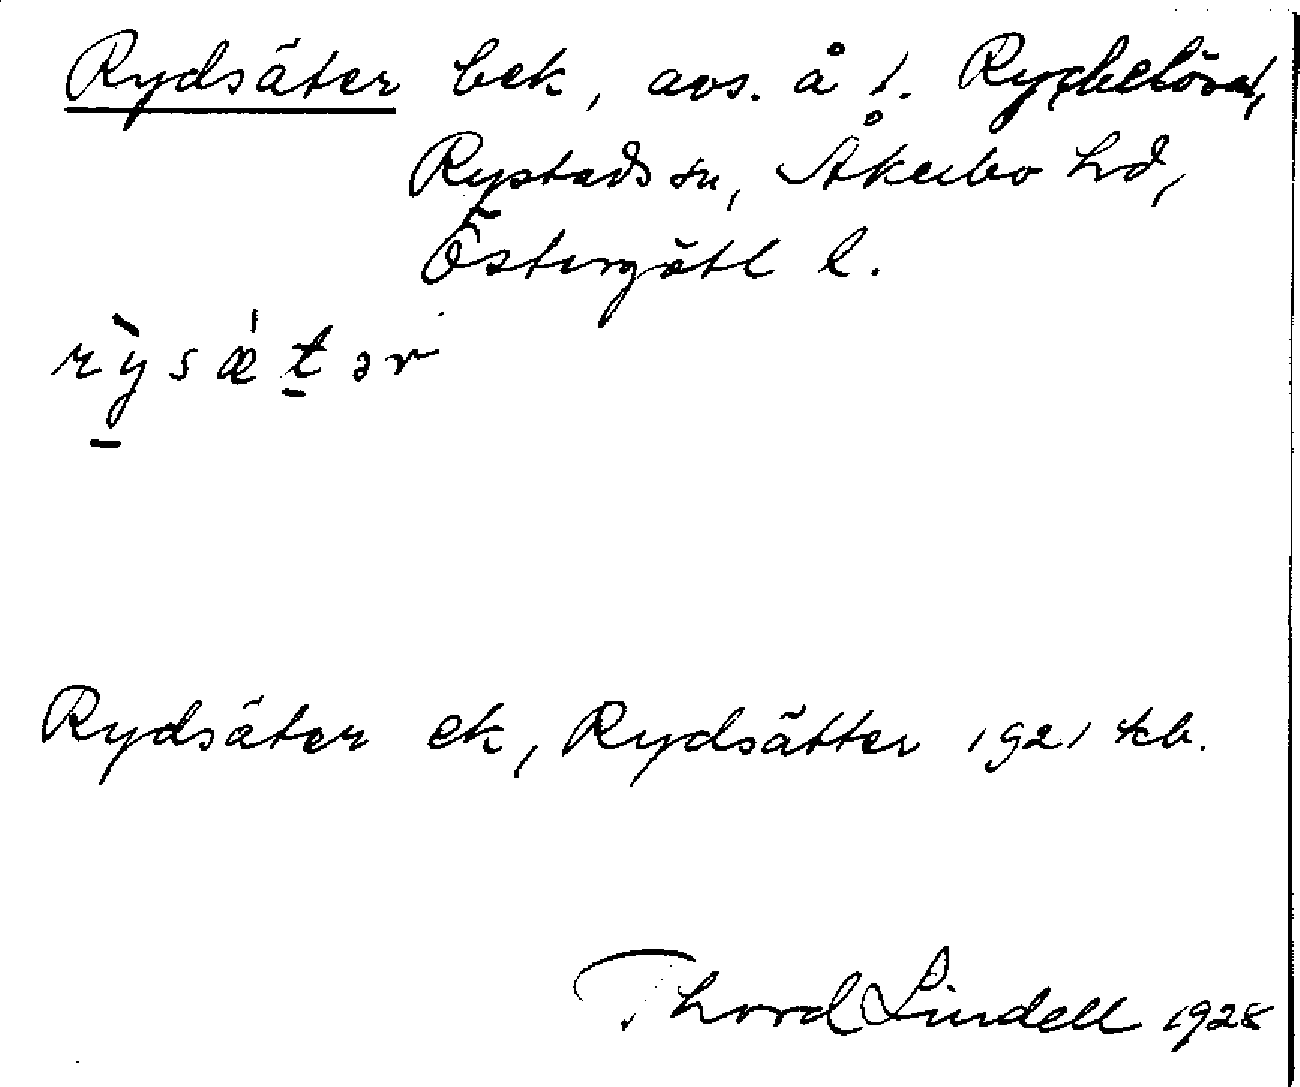 Rydsäter bek, avs. å t. Ryckelösa,
Rystads sn, Åkerbo hd,
Östergötl l.
rỳsǽtər
Rydsäter ek, Rydsätter 1921 kb.
Thord Lindell 1928